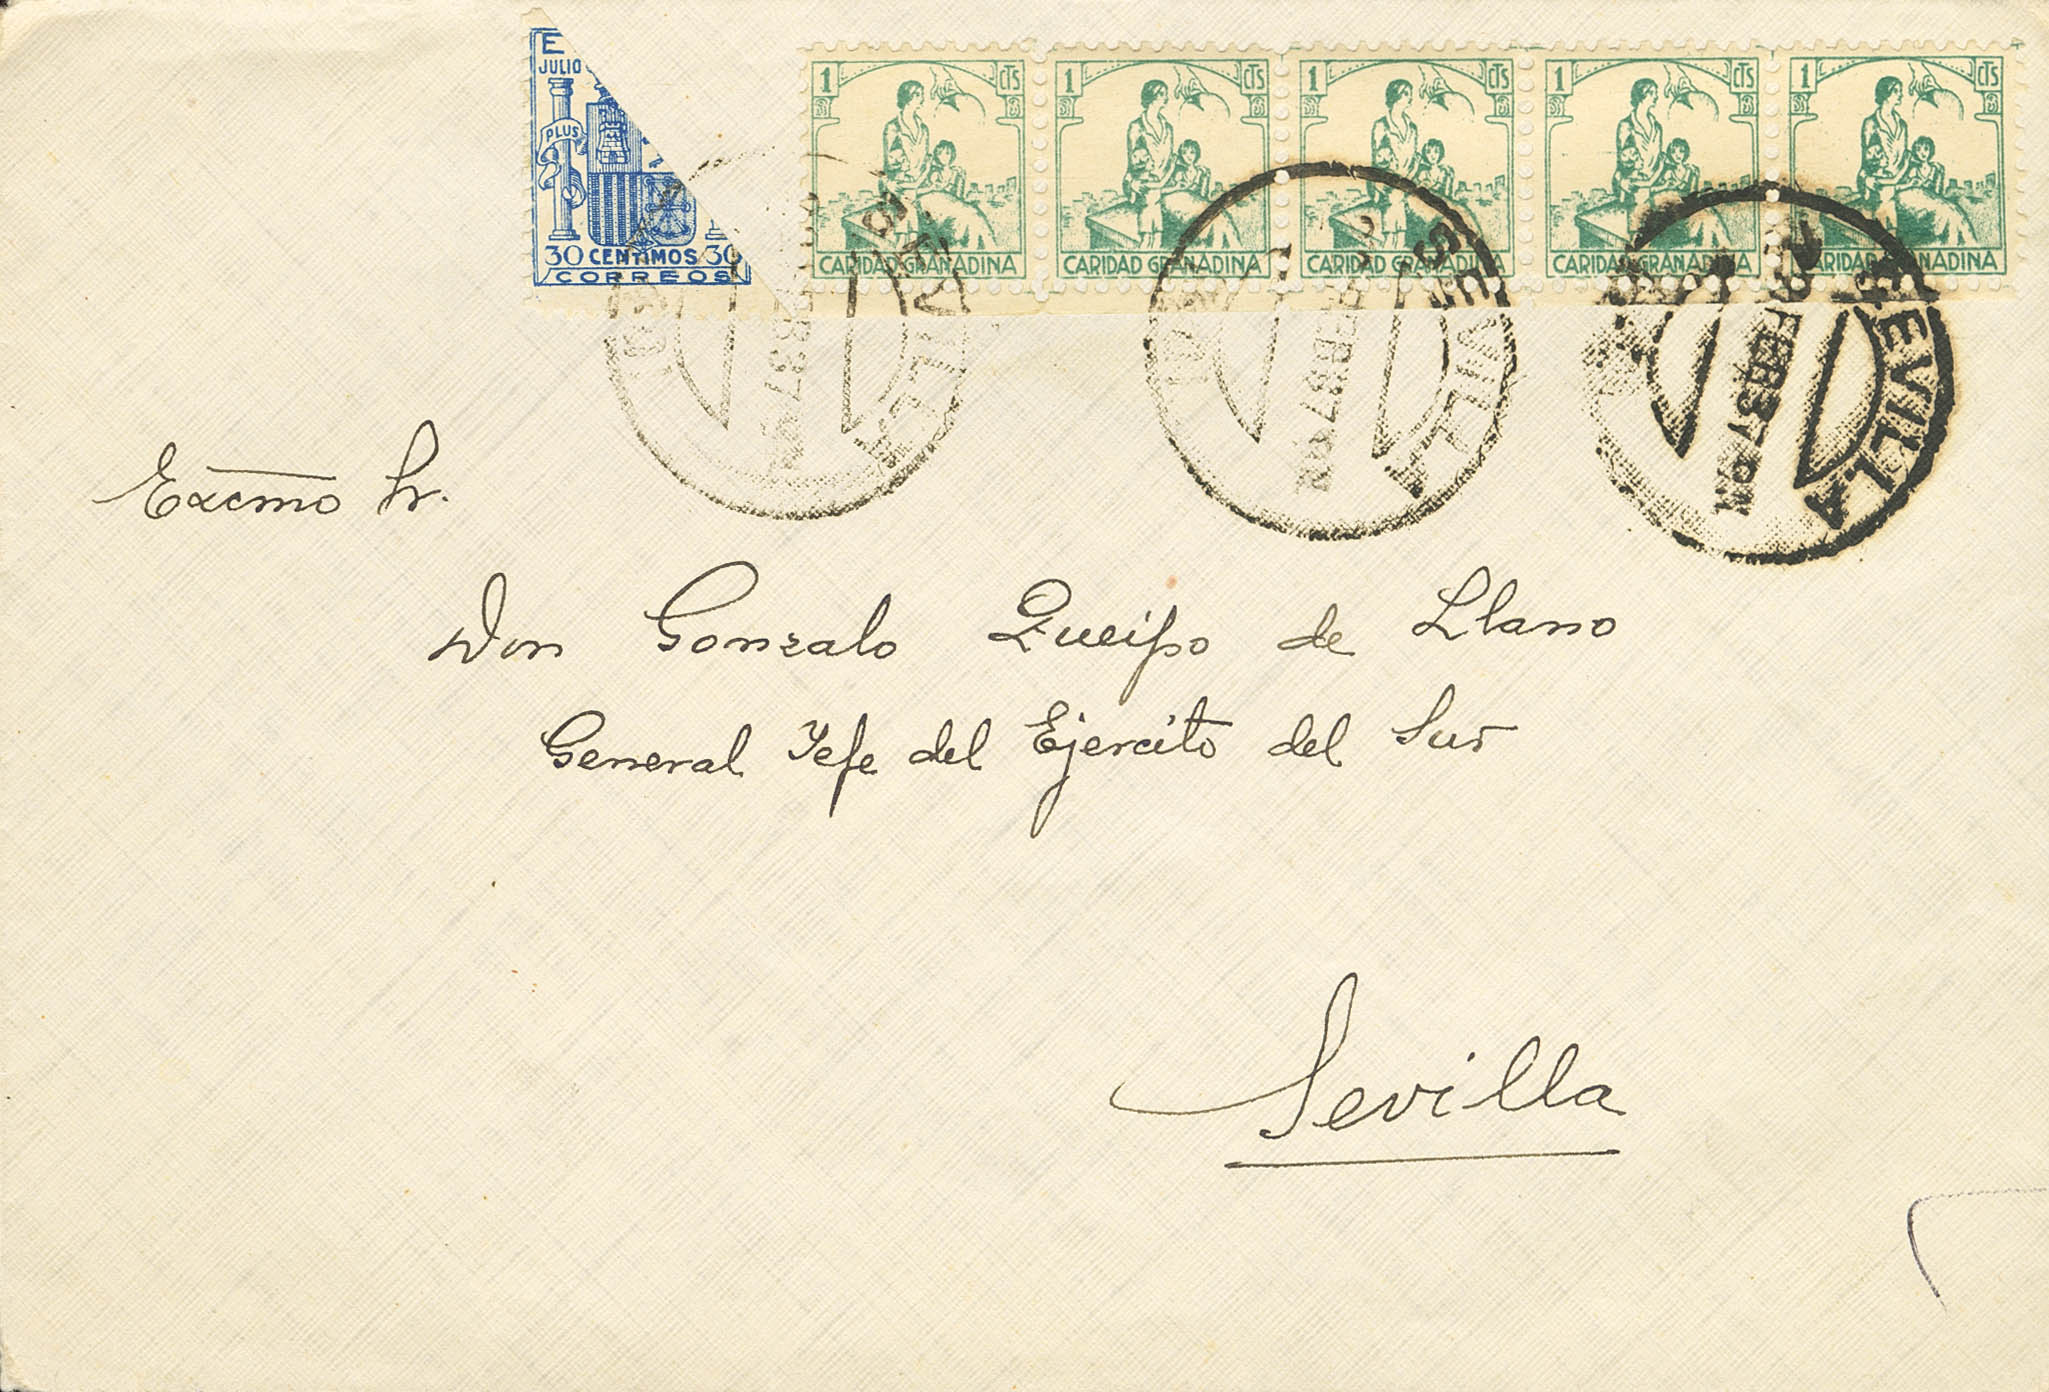 E
JULIO
PLUS
30 CENTIMOS 30
CORREOS
1 CTS
CARIDAD GRANADINA
1 CTS
CARIDAD GRANADINA
1 CTS
CARIDAD GRANADINA
1 CTS
CARIDAD GRANADINA
1 CTS
CARIDAD GRANADINA
SEVILLA
FEB 37
SEVILLA
FEB 37
SEVILLA
FEB 37
Excmo Sr.
Don Gonzalo Queipo de Llano
General Jefe del Ejercito del Sur
Sevilla